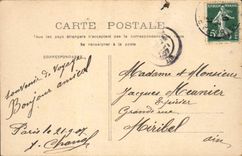 CARTE POSTALE
Tous les pays étrangers n'acceptent pas la correspondance
Se renseigner à la poste
CORRESPONDANCE
Souvenir de Voyage
Bonjour amical
Paris le 21-9-07
Madame et Monsieur
Jacques Meunier
Épicier
Grande rue
Miribel
Ain